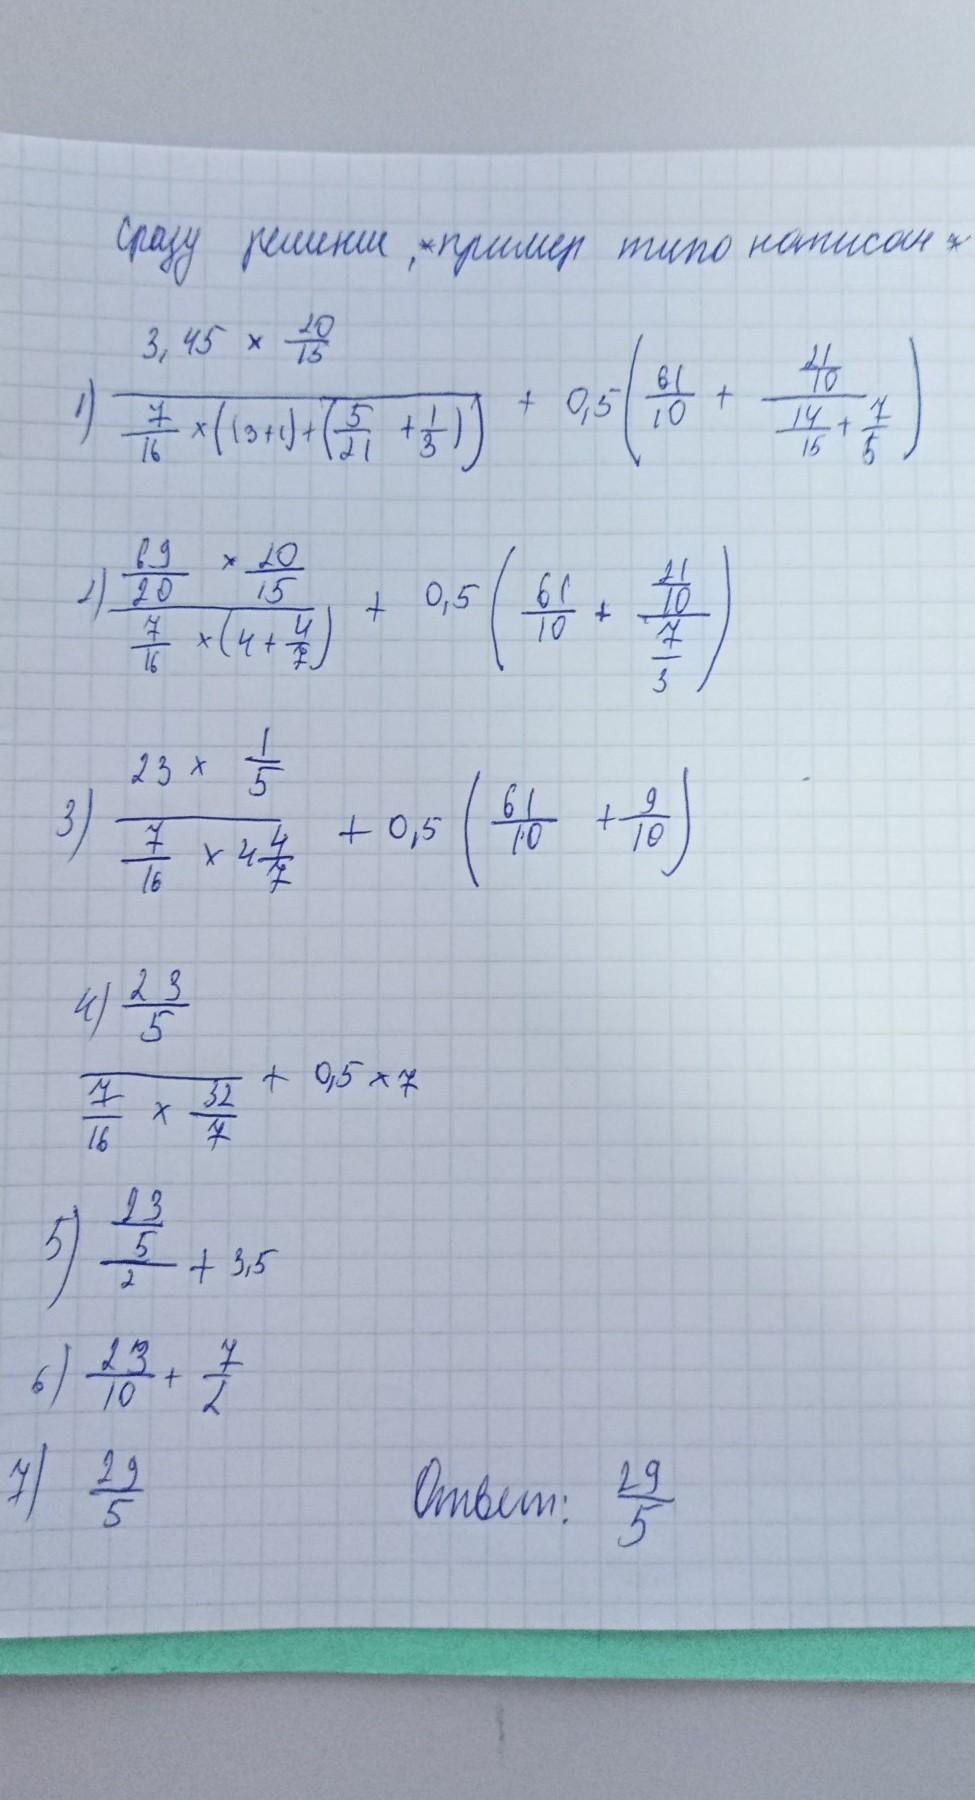 Сразу решение, *пример типо написан*
1) (3,45 × 20/15) / (7/16 × ((3+1)+(5/21 + 1/3))) + 0,5 (61/10 + (21/10) / (14/15 + 7/5))
2) (69/20 × 20/15) / (7/16 × (4 + 4/7)) + 0,5 (61/10 + (21/10) / (7/3))
3) (23 × 1/5) / (7/16 × 4 4/7) + 0,5 (61/10 + 9/10)
4) (23/5) / (7/16 × 32/7) + 0,5 × 7
5) (23/5) / 2 + 3,5
6) 23/10 + 7/2
7) 29/5 Ответ: 29/5